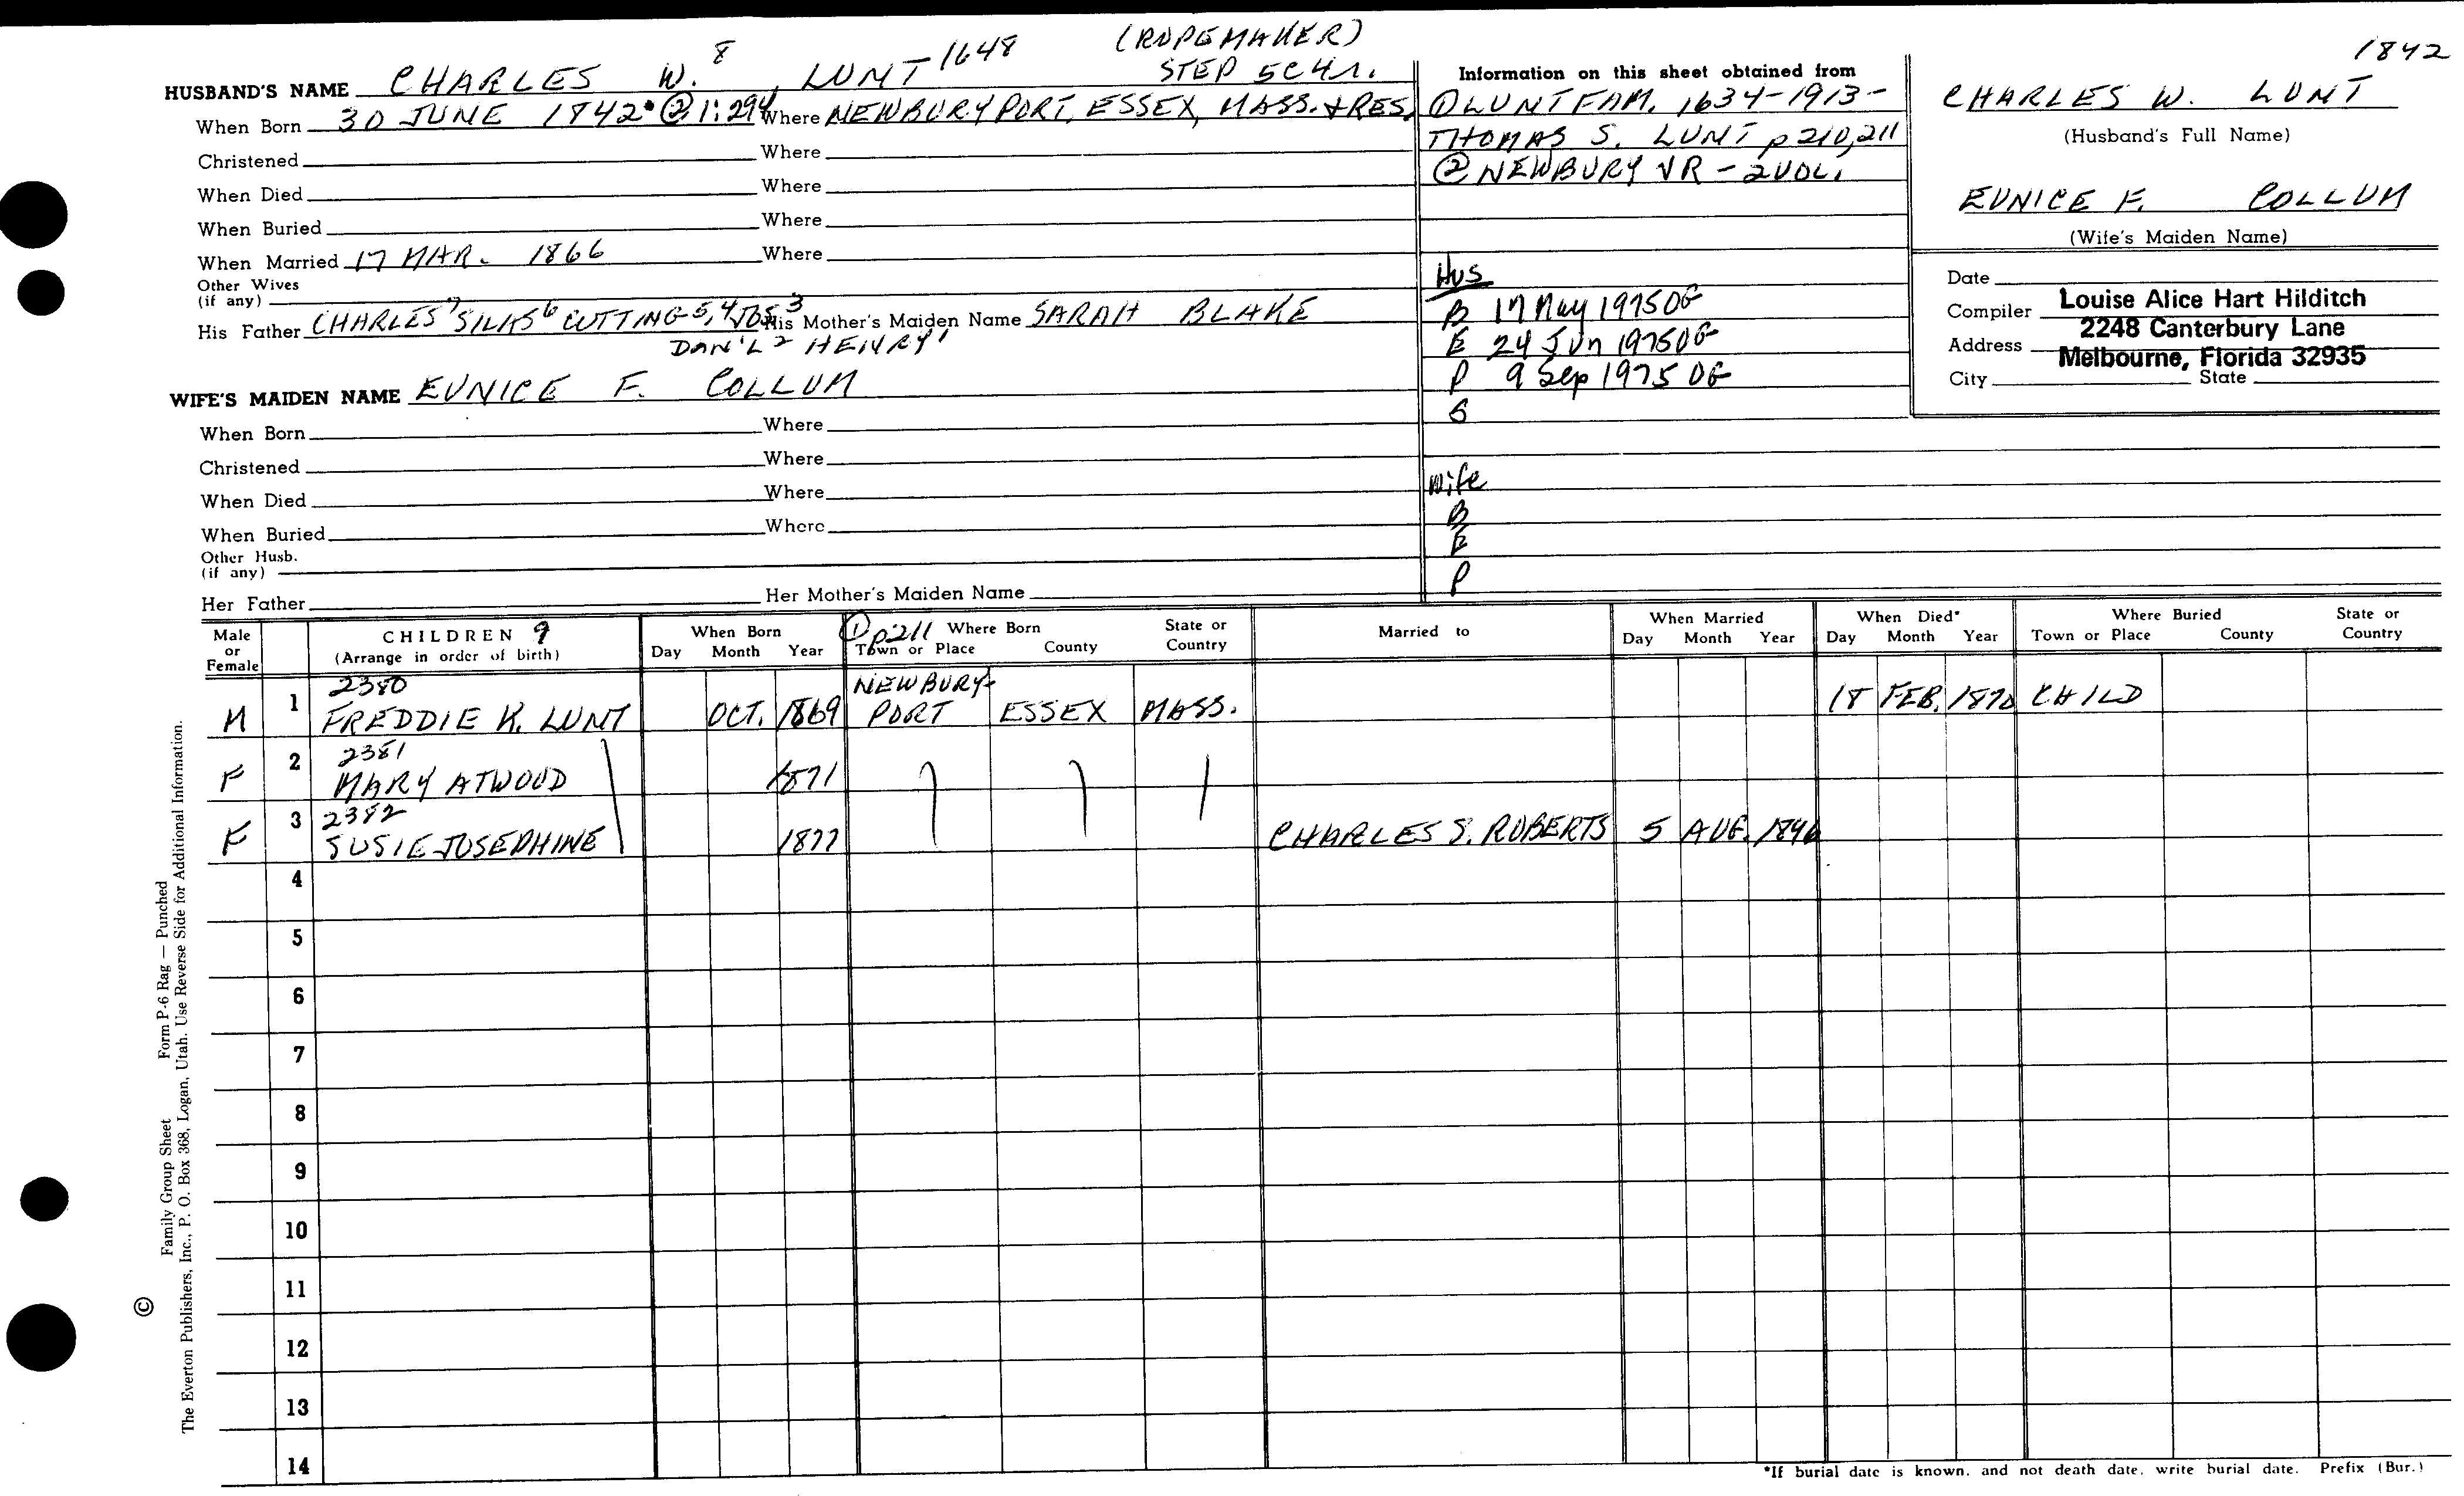 (ROPEMAKER)
1842
HUSBAND'S NAME CHARLES W. 8 LUNT 1648 STEP 5C4R.
When Born 30 JUNE 1842 • ② 1:294 Where NEWBURYPORT, ESSEX, MASS. & RES.
Christened Where
When Died Where
When Buried Where
When Married 17 MAR. 1866 Where
Other Wives
(if any)
His Father CHARLES 7 SILAS 6 CUTTING 5, 4 JOS 3 His Mother's Maiden Name SARAH BLAKE
DAN'L 2 HENRY 1
WIFE'S MAIDEN NAME EUNICE F. COLLUM
When Born Where
Christened Where
When Died Where
When Buried Where
Other Husb.
(if any)
Her Father Her Mother's Maiden Name
Information on this sheet obtained from
① LUNT FAM. 1634-1913-
THOMAS S. LUNT p 210,211
② NEWBURY VR - 2 VOL.
Hus
B 17 May 1975 OG
E 24 Jun 1975 OG
P 9 Sep 1975 OG
S
Wife
B
E
P
CHARLES W. LUNT
(Husband's Full Name)
EUNICE F. COLLUM
(Wife's Maiden Name)
Date
Compiler Louise Alice Hart Hilditch
Address 2248 Canterbury Lane
Melbourne, Florida 32935
City State
Male or Female CHILDREN 9 (Arrange in order of birth) When Born Day Month Year ① p211 Where Born Town or Place County State or Country Married to When Married Day Month Year When Died* Day Month Year Where Buried Town or Place County State or Country
M 1 2380 FREDDIE K. LUNT OCT. 1869 NEWBURY- PORT ESSEX MASS. 18 FEB. 1870 CHILD
F 2 2381 MARY ATWOOD 1871
F 3 2382 SUSIE JOSEPHINE 1877 CHARLES S. ROBERTS 5 AUG. 1896
4
5
6
7
8
9
10
11
12
13
14
*If burial date is known, and not death date, write burial date. Prefix (Bur.)
© Family Group Sheet Form P-6 Rag — Punched
The Everton Publishers, Inc., P. O. Box 368, Logan, Utah. Use Reverse Side for Additional Information.